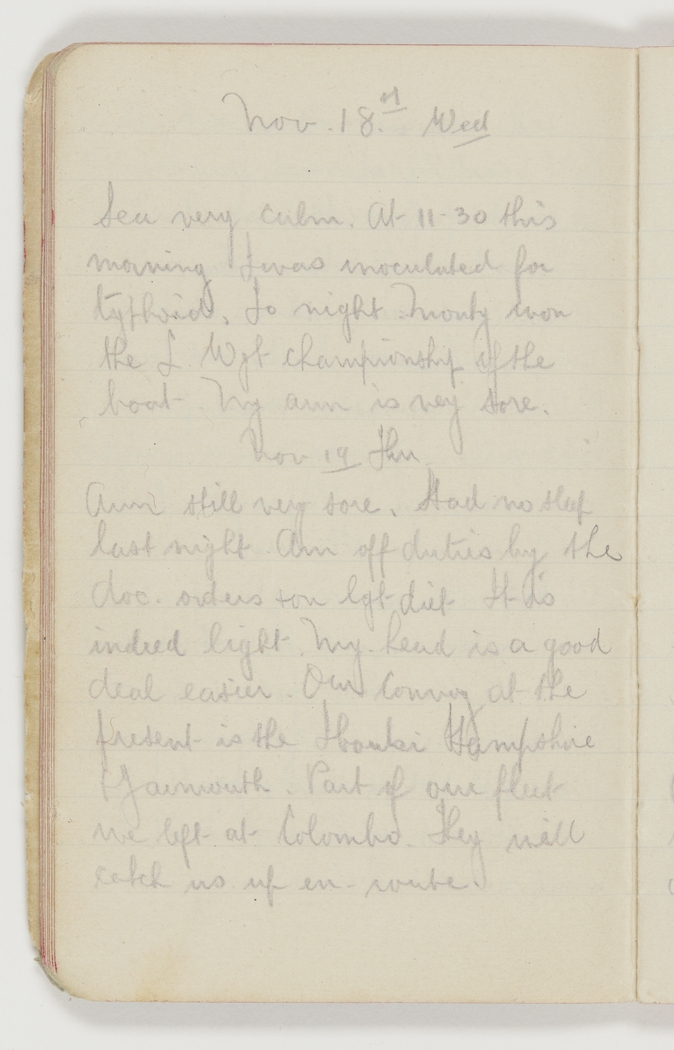 Nov. 18.st Wed
Sea very calm. At 11-30 this
morning I was inoculated for
typhoid. To night Monty won
the L. Wgt championship of the
boat. My arm is very sore.
Nov 19 Thu.
Arm still very sore. Had no sleep
last night. Am off duties by the
doc. orders & on lgt diet. It is
indeed light. My head is a good
deal easier. Our Convoy at the
present is the Ibouki Hampshire
& Yarmouth. Part of our fleet
we left at Colombo. They will
catch us up en-route.